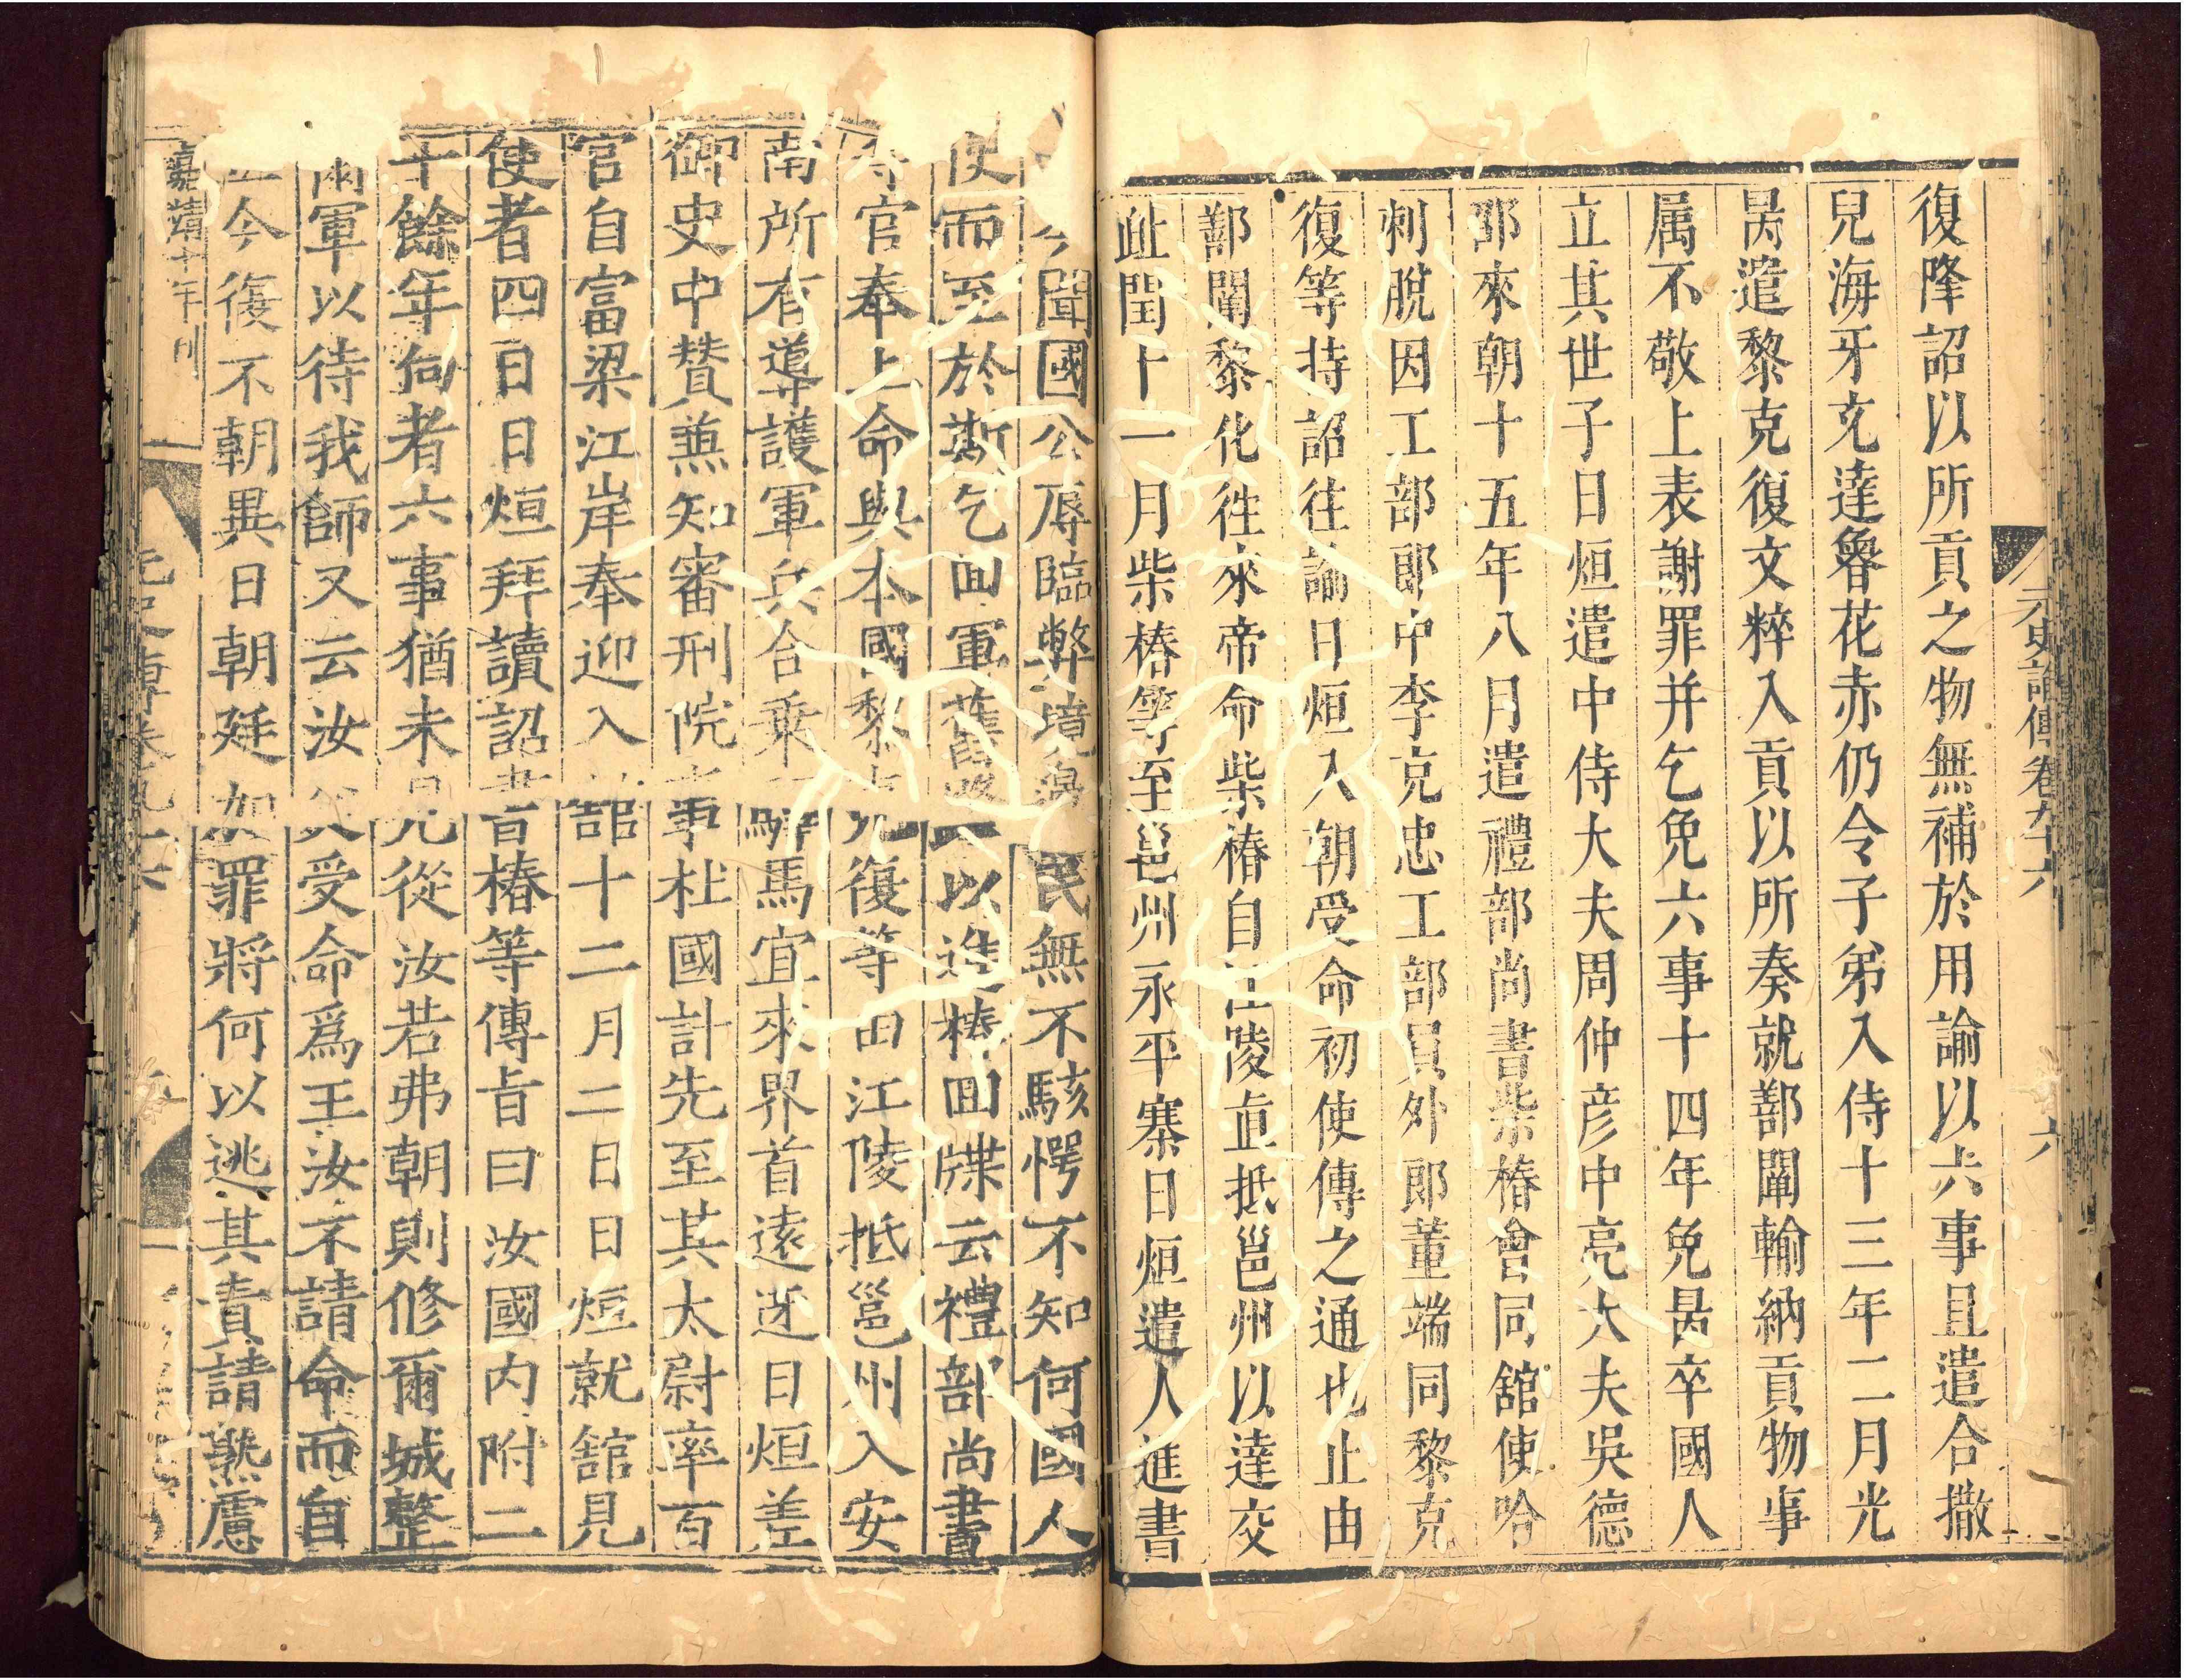 復降詔以所貢之物無補於用諭以六事且遣合撒
兒海牙充達魯花赤仍令子弟入侍十三年二月光
昺遣黎克復文粹入貢以所奏就鄯闡輸納貢物事
属不敬上表謝罪并乞免六事十四年免昺卒國人
立其世子日烜遣中侍大夫周仲彦中亮大夫吳德
邵來朝十五年八月遣禮部尚書柴椿會同舘使哈
剌脫因工部郎中李克忠工部員外郎董端同黎克
復等持詔往諭日烜入朝受命初使傳之通也止由
鄯闡黎化往來帝命柴椿自江陵直抵邕州以達交
趾閏十一月柴椿等至邕州永平寨日烜遣人進書
今聞國公辱臨弊境民無不駭愕不知何國人
使而至於斯乞囬軍舊路以進椿囬牒云禮部尚書
等官奉上命與本國黎克復等由江陵抵邕州入安
南所有導護軍兵合乗馬宜來界首遠迓日烜差
御史中贊兼知審刑院事杜國計先至其太尉率百
官自富梁江岸奉迎入舘十二月二日日烜就舘見
使者四日日烜拜讀詔書椿等傳旨曰汝國内附二
十餘年向者六事猶未見從汝若弗朝則修爾城整
爾軍以待我師又云汝父受命爲王汝不請命而自
今復不朝異日朝廷加罪將何以逃其責請熟慮
元史列傳卷九十六
六
嘉靖十年刊